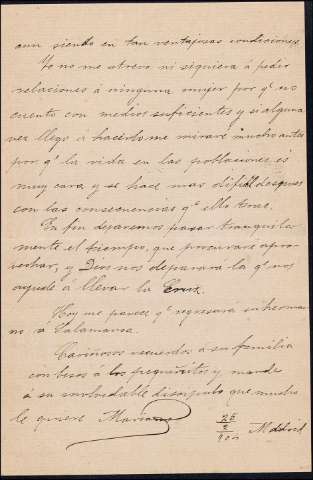 aun siendo en tan ventajosas condiciones
Yo no me atrevo ni siquiera á pedir
relaciones á ninguna mujer por qº no
cuento con medios suficientes y si alguna
vez llego á hacerlo me miraré mucho antes
por qº la vida en las poblaciones es
muy cara y se hace mas dificil despues
con las consecuencias qº ella trae.
En fin dejaremos pasar tranquila
mente el tiempo, que procuraré apro-
vechar, y Dios nos deparará la qº nos
ayude á llevar la Cruz.
Hoy me parece qº regresará su herma
no a Salamanca.
Cariñosos recuerdos á su familia
con besos á los pequeñitos y mande
á su inolvidable discipulo que mucho
le quiere Mariano
25
2 Madrid